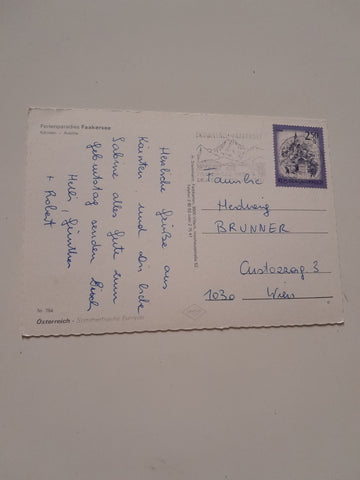 Ferienparadies Faakersee
Kärnten - Austria
Herzliche Grüße aus
Kärnten und Dir liebe
Sabine alles Gute zum
Geburtstag senden Dir
Helli, Günther
+ Robert
Familie
Hedwig
BRUNNER
Custozzag. 3
1030 Wien
Nr. 784
Österreich - Sommerfrische Europas